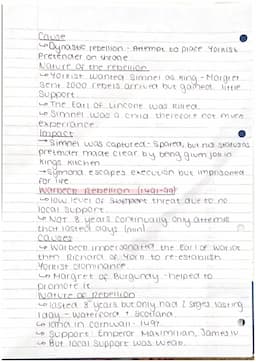 Cause
↳ Dynastic rebellion - Attempt to place Yorkist
Pretender on throne
Nature of the rebellion
↳ Yorkist wanted Simnel as King - Margret
sent 2000 rebels arrived but gained little
support.
↳ The Earl of Lincoln was killed.
↳ Simnel was a child therefore not much
experience.
Impact
↳ Simnel was captured - spared, but his status as
pretender made clear by being given job in
kings kitchen
↳ escapes execution but imprisoned
for life.
Warbeck Rebellion (1491-99)
↳ low level of support threat due to no
local support.
↳ Not 8 years continually only attempts
that lasted days
Causes
↳ Warbeck impersonated the Earl of Warwick
then Richard of York to re-establish
Yorkist dominance.
↳ Margaret of Burgundy - helped to
promote it.
Nature of Rebellion
↳ lasted 8 years but only had 2 sieges lasting
1 day - Waterford + Scotland.
↳ land in Cornwall - 1497
↳ Support: Emperor Maximilian, James IV.
↳ But local support was weak.